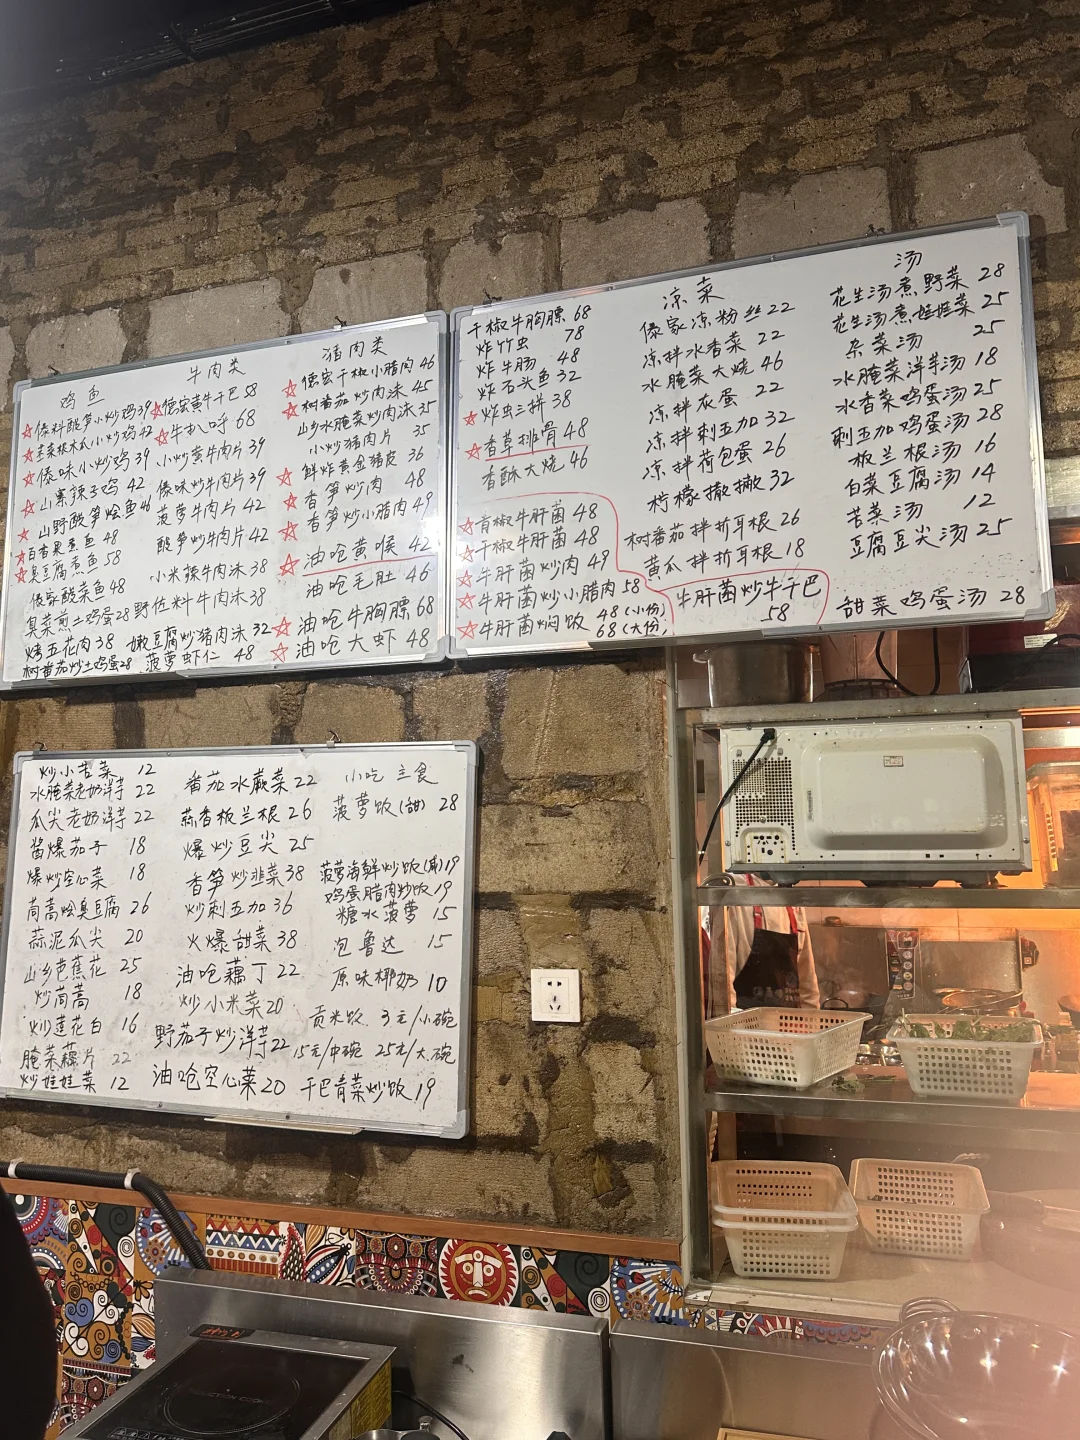 鸡鱼
傣料酸笋小炒鸡39
苤菜根木瓜小炒鸡42
傣味小炒鸡39
山寨辣子鸡 42
山野酸笋烩鱼46
百香果煮鱼 48
臭豆腐煮鱼 58
傣家酸菜鱼48
臭菜煎土鸡蛋28
烤五花肉38
树番茄炒土鸡蛋28
牛肉类
德宏黄牛干巴58
牛扒呼 68
小炒黄牛肉片 39
傣味炒牛肉片39
菠萝牛肉片 42
酸笋炒牛肉片42
小米辣牛肉沫38
野佐料牛肉沫38
嫩豆腐炒猪肉沫 32
菠萝虾仁 48
猪肉类
德宏干椒小腊肉46
树番茄炒肉沫 45
山乡水腌菜炒肉沫35
小炒猪肉片 35
鲜炸黄金猪皮 36
香笋炒肉 48
香笋炒小腊肉49
油呛黄喉 42
油呛毛肚 46
油呛牛胸膘68
油呛大虾 48
干椒牛胸膘 68
炸竹虫 78
炸牛肠 48
炸石头鱼 32
炸虫三拼 38
香草排骨 48
香酥大烧 46
青椒牛肝菌 48
干椒牛肝菌 48
牛肝菌炒肉 49
牛肝菌炒小腊肉 58
牛肝菌焖饭 48(小份)
68(大份)
凉菜
傣家凉粉丝22
凉拌水香菜 22
水腌菜大烧 46
凉拌灰蛋 22
凉拌刺五加 32
凉拌荷包蛋 26
柠檬撒撇 32
树番茄拌折耳根 26
黄瓜拌折耳根 18
牛肝菌炒牛干巴
58
汤
花生汤煮野菜 28
花生汤煮娃娃菜 25
杂菜汤 25
水腌菜洋芋汤 18
水香菜鸡蛋汤 25
刺五加鸡蛋汤 28
板兰根汤 16
白菜豆腐汤 14
苦菜汤 12
豆腐豆尖汤 25
甜菜鸡蛋汤 28
炒小苦菜 12
水腌菜老奶洋芋 22
瓜尖老奶洋芋 22
酱爆茄子 18
爆炒空心菜 18
茼蒿烩臭豆腐 26
蒜泥瓜尖 20
山乡芭蕉花 25
炒茼蒿 18
炒莲花白 16
腌菜藕片 22
炒娃娃菜 12
番茄水蕨菜 22
蒜香板兰根 26
爆炒豆尖 25
香笋炒韭菜 38
炒刺五加 36
火爆甜菜 38
油呛藕丁 22
炒小米菜20
野茄子炒洋芋22
油呛空心菜20
小吃 主食
菠萝饭(甜) 28
菠萝海鲜炒饭(咸)19
鸡蛋腊肉炒饭 19
糖水菠萝 15
泡鲁达 15
原味椰奶 10
贡米饭 3元/小碗
15元/中碗 25元/大碗
干巴青菜炒饭 19